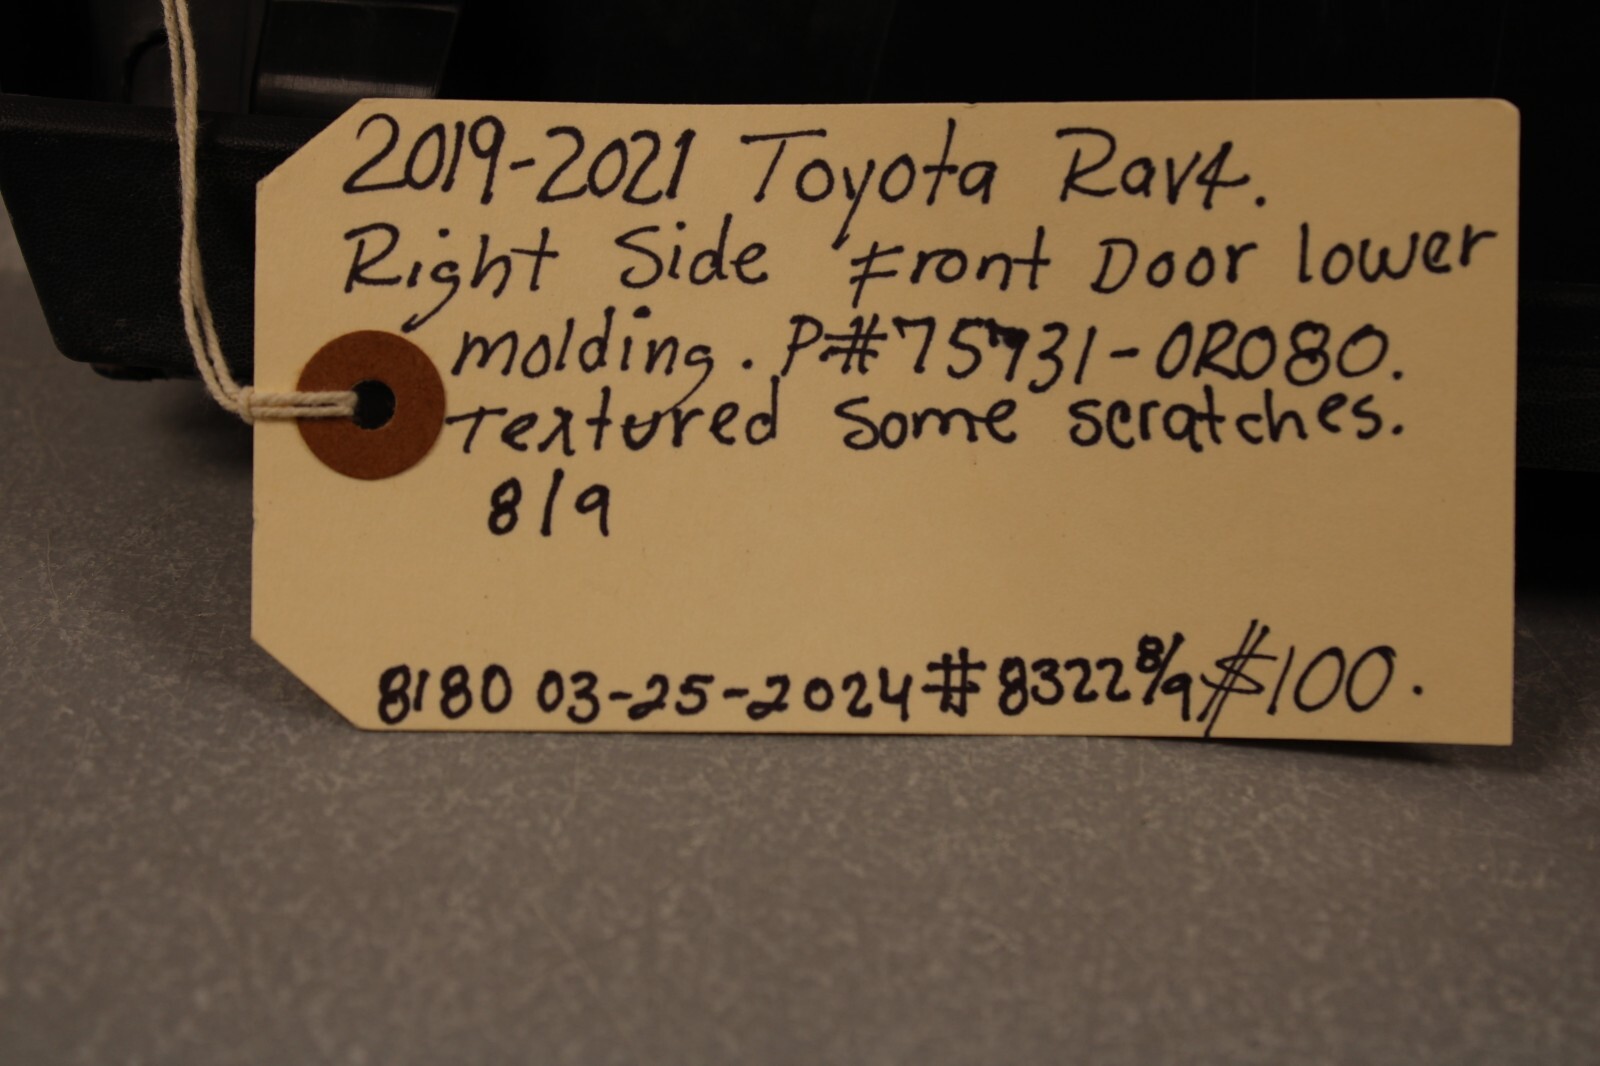 2019-2021 Toyota Rav4.
Right Side Front Door lower
molding. P#75931-0R080.
Textured Some scratches.
8/9
8180 03-25-2024 #8322 8/9 $100.